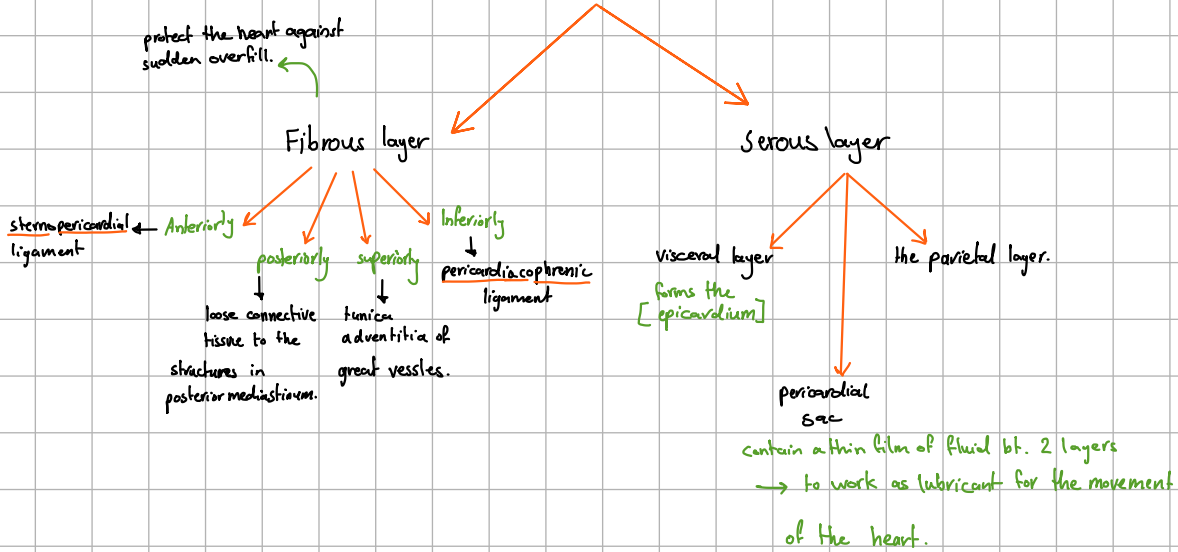 protect the heart against
sudden overfill.
Fibrous layer
serous layer
sternopericardial
ligament
Anteriorly
posteriorly
loose connective
tissue to the
structures in
posterior mediastinum.
superiorly
tunica
adventitia of
great vessles.
Inferiorly
pericardiacophrenic
ligament
visceral layer
forms the
[epicardium]
the parietal layer.
pericardial
sac
contain a thin film of fluid bt. 2 layers
→ to work as lubricant for the movement
of the heart.